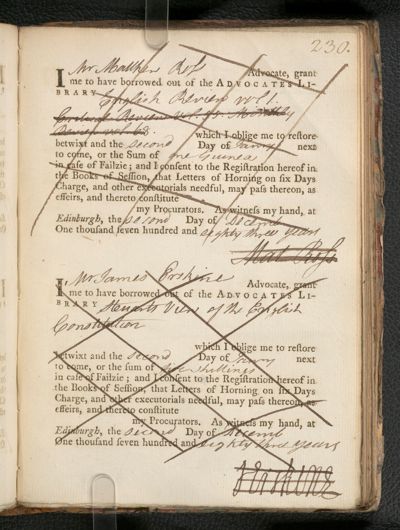 230.
I Mr Matthew Ross Advocate, grant
me to have borrowed out of the ADVOCATES LI-
BRARY English Review vol 1.
Critical Review vol. Monthly
Review vol. 68. which I oblige me to restore
betwixt and the second Day of Janry next
to come, or the Sum of one Guinea
in case of Failzie; and I consent to the Registration hereof in
the Books of Session, that Letters of Horning on six Days
Charge, and other executorials needful, may pass thereon, as
effeirs, and thereto constitute
my Procurators. As witness my hand, at
Edinburgh, the second Day of Decemr
One thousand seven hundred and eighty three years
Mat. Ross
I Mr James Erskine Advocate, grant
me to have borrowed out of the ADVOCATES LI-
BRARY Stewarts View of the English
Constitution
which I oblige me to restore
betwixt and the second Day of Janry next
to come, or the sum of shillings
in case of Failzie; and I consent to the Registration hereof in
the Books of Session, that Letters of Horning on six Days
Charge, and other executorials needful, may pass thereon, as
effeirs, and thereto constitute
my Procurators. As witness my hand, at
Edinburgh, the second Day of Decemr
One thousand seven hundred and eighty three years
J Erskine